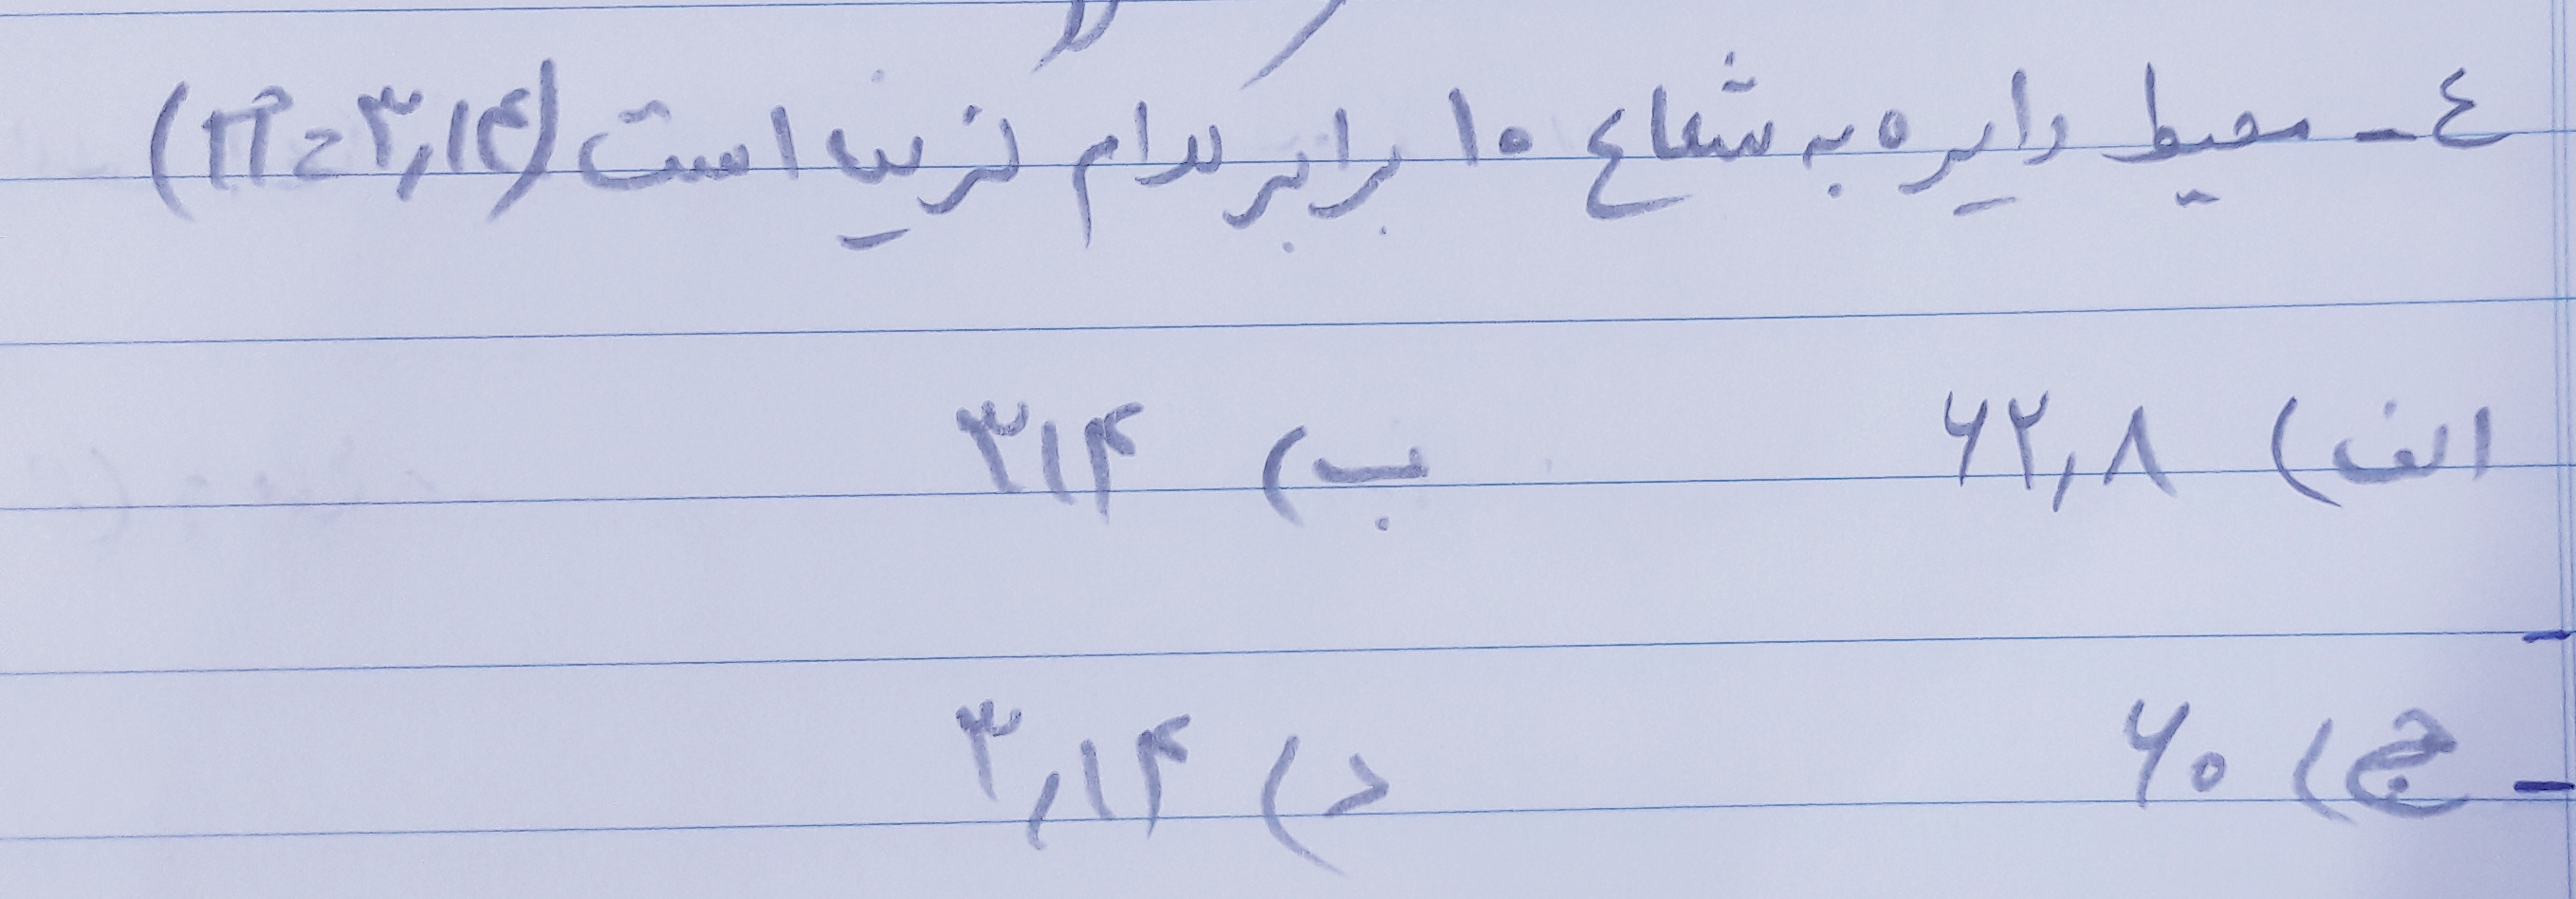 ٤- محیط دایره به شعاع ۱۰ برابر کدام گزینه است (π=۳,۱۴)
الف) ۶۲,۸ ب) ۳۱۴
ج) ۶۰ د) ۳,۱۴